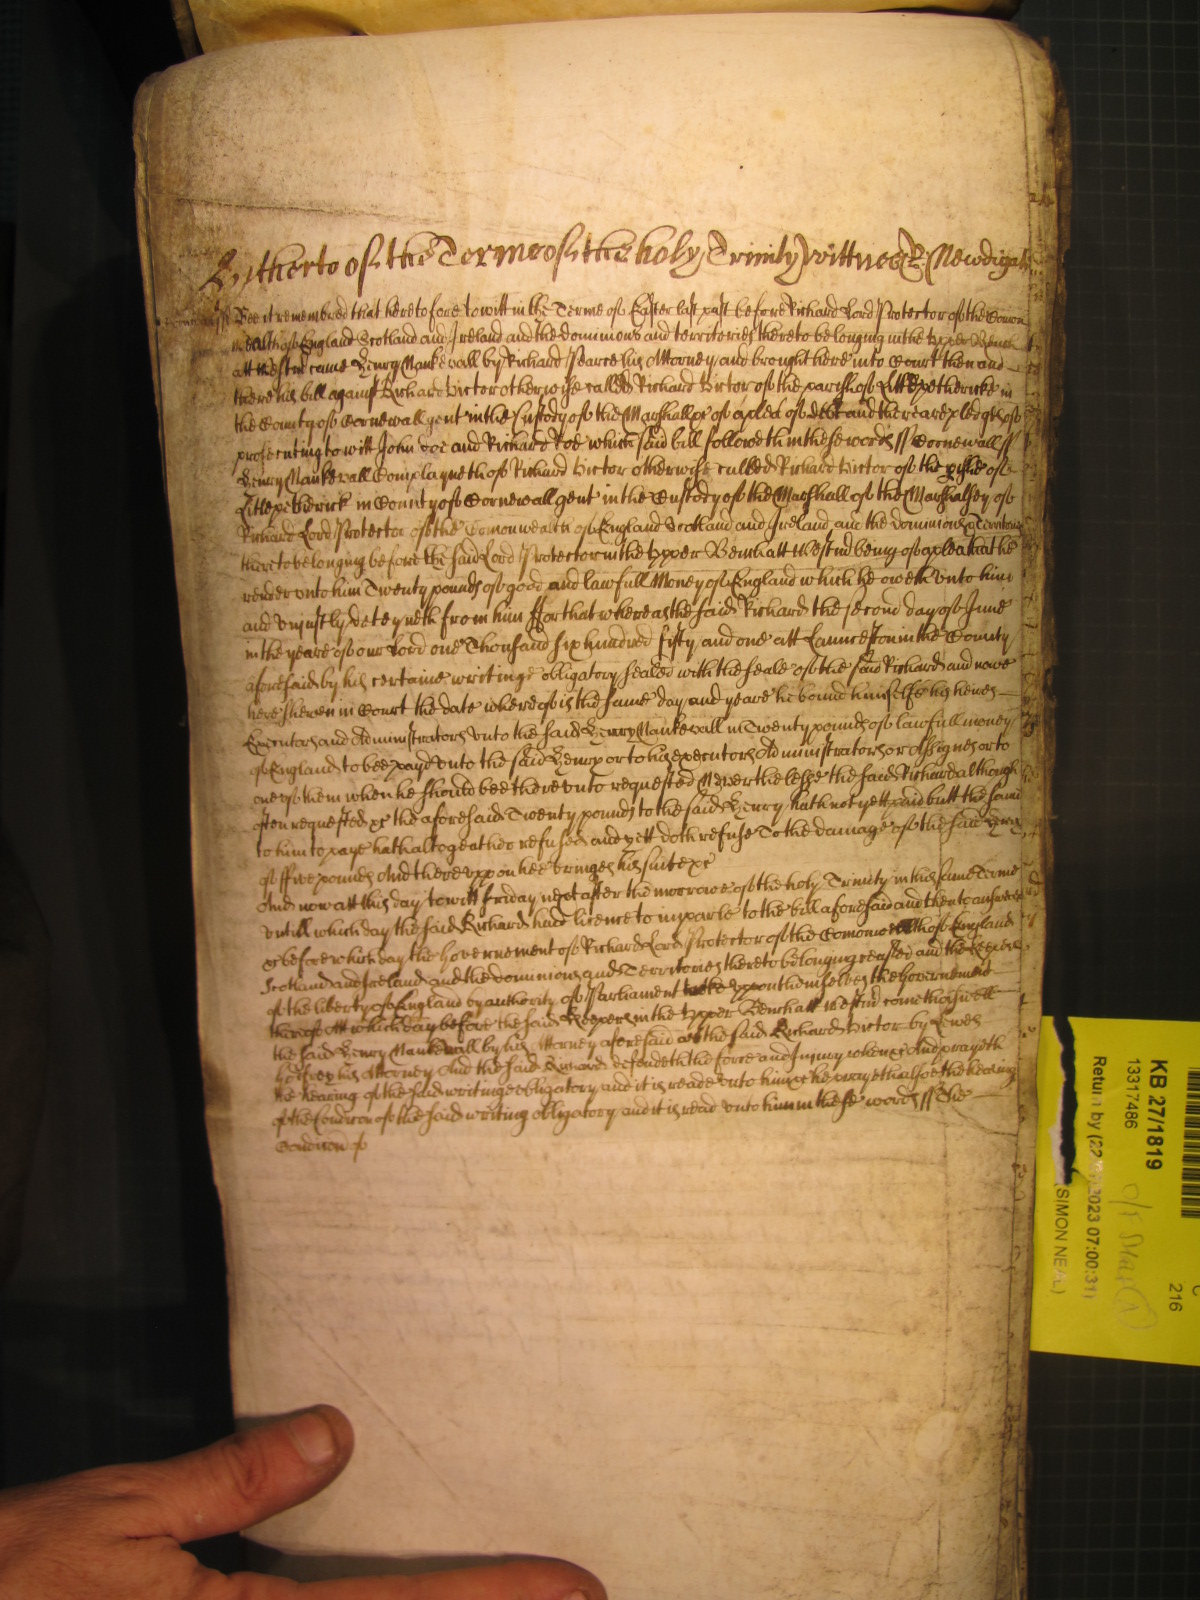 Hytherto of the Terme of the holy Trinity wittnes R Newdigate
Bee it remembred that heretofore to witt in the Terme of Easter last past before Richard Lord Protector of the Comon
wealth of England Scotland and Ireland and the dominions and territories thereto belonging in the upper Bench
att Westm came Henry Mankewall by Richard Pearce his Attorney and brought here into Court then and
there his bill against Richard Victor otherwise called Richard Victor of the parish of Little petherick in
the County of Cornewall gent in the Custody of the Marshall &c of a plea of debt and there are pledges of
prosecuting to witt John Doe and Richard Roe which said bill followeth in these words ss Cornewall ss
Henry Mankewall Complayneth of Richard Victor otherwise called Richard Victor of the pishe of
Little petherick in County of Cornewall gent in the Custody of the Marshall of the Marshalsey of
Richard Lord Protector of the Comonwealth of England Scotland and Ireland and the dominions & Territories
thereto belonging before the said Lord Protector in the upper Bench att Westm being of a plea that he
render unto him Twenty pounds of good and lawfull Money of England which he oweth unto him
and unjustly deteyneth from him ffor that whereas the said Richard the second day of June
in the yeare of our Lord one Thousand six hundred fifty and one att Launceston in the County
aforesaid by his certaine writinge obligatory sealed with the seale of the said Richard and nowe
here shewen in Court the date whereof is the same day and yeare he bound himselfe his heires
Executors and Administrators unto the said Henry Mankewall in Twenty pounds of lawfull money
of England to bee payd unto the said Henry or to his executors Administrators or Assignes or to
one of them when he should bee thereunto requested Neverthelesse the said Richard although
often requested &c the aforesaid Twenty pounds to the said Henry hath not yett paid butt the same
to him to paye hath altogeather refused and yett doth refuse To the damage of the said Henry
of ffive pounds And thereuppon hee bringes his suit &c
And now att this day to witt Friday next after the morrowe of the holy Trinity in this same Terme
untill which day the said Richard had licence to imparle to the bill aforesaid and then to answere
&c before which day the Governement of Richard Lord Protector of the Comonwealth of England
Scotland and Ireland and the dominions and Territories thereto belonging ceased and the Keepers
of the liberty of England by authority of Parliament tooke uppon themselves the Governement
thereof Att which day before the said Keepers in the upper Bench att Westm cometh aswell
the said Henry Mankewall by his Attorney aforesaid as the said Richard Victor by Lewes
his Attorney And the said Richard defendeth the force and Injury when &c And prayeth
the hearing of the said writinge obligatory and it is reade unto him &c he prayeth alsoe the hearing
of the Condicon of the said writing obligatory and it is read unto him in these words ss The
Condicon of
KB 27/1819
13317486
216
Return by (22
2023 07:00:31)
(SIMON NEAL)